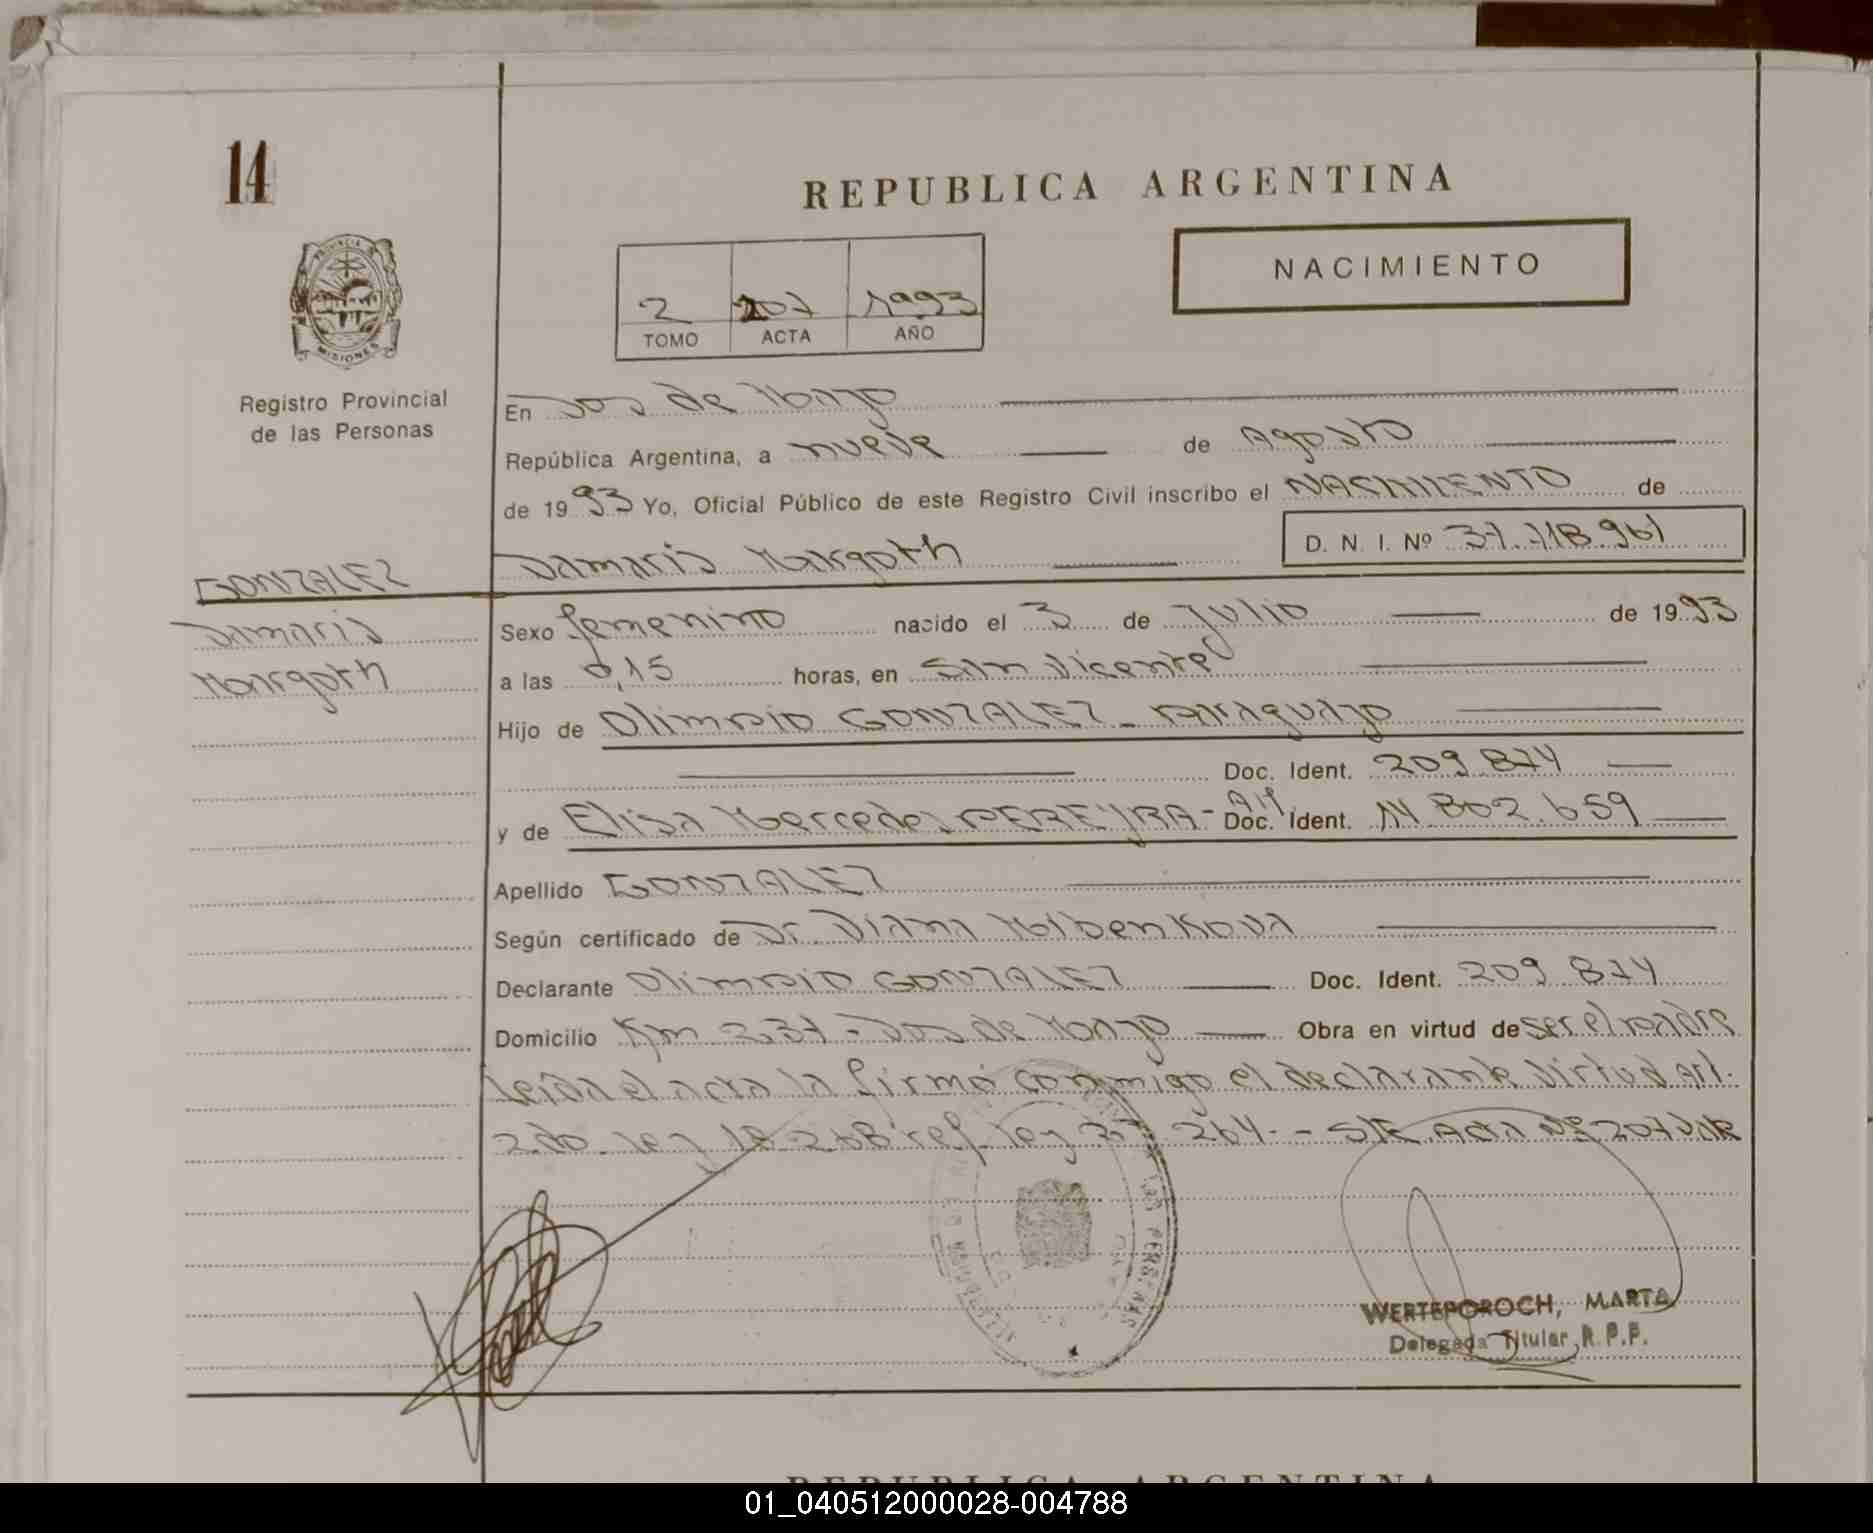 14
REPUBLICA ARGENTINA
PROVINCIA DE
MISIONES
NACIMIENTO
2 207 1993
TOMO ACTA AÑO
Registro Provincial
de las Personas
En Dos de Mayo
República Argentina, a nueve de Agosto
de 1993 Yo, Oficial Público de este Registro Civil inscribo el NACIMIENTO de
Damaris Margoth D. N. I. Nº 37.718.961
GONZALEZ
Damaris
Margoth
Sexo femenino nacido el 3 de Julio de 1993
a las 0,15 horas, en San Vicente
Hijo de Olimpio GONZALEZ - Paraguayo
Doc. Ident. 209.874
y de Elisa Mercedes PEREYRA - Arg. Doc. Ident. 14.802.659
Apellido GONZALEZ
Según certificado de Dr. Diana
Declarante Olimpio GONZALEZ Doc. Ident. 209.874
Domicilio Km 237 - Dos de Mayo Obra en virtud de ser el padre
Leida el acta la firmó conmigo el declarante virtud Art.
2do. ley 18.268 ref. ley 264.- Acta Nº 207 Vale
WERTEPOROCH, MARTA
Delegada Titular R.P.P.
REPUBLICA ARGENTINA
01_040512000028-004788